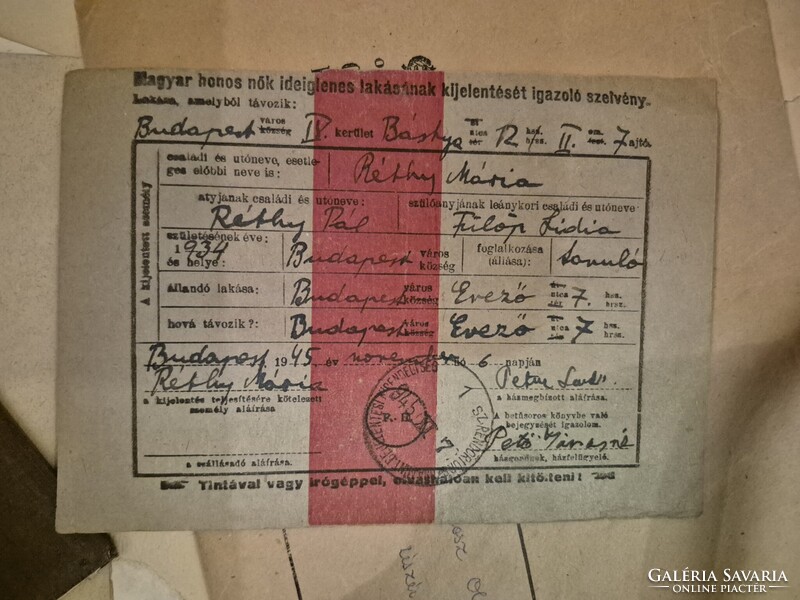 Magyar honos nők ideiglenes lakásának kijelentését igazoló szelvény.
Lakása, amelyből távozik:
Budapest város község IV. kerület Bástya út utca tér 12 hsz. hrsz. II. em. fszt. 7 ajtó.
A kijelentett személy
családi és utóneve, esetleges előbbi neve is: Réthy Mária
atyjának családi és utóneve: szülőanyjának leánykori családi és utóneve:
Réthy Pál Fülöp Lidia
születésének éve: 1934 és helye: Budapest város község foglalkozása (állása): tanuló
állandó lakása: Budapest város község Evező út utca tér 7. hsz. hrsz.
hová távozik?: Budapest város község Evező út utca tér 7 hsz. hrsz.
Budapest 1945 év november hó 6 napján
Réthy Mária
a kijelentés teljesítésére kötelezett személy aláírása
a házmegbízott aláírása
A betűsoros könyvbe való bejegyzését igazolom.
Pető
a szállásadó aláírása.
házgondnok, házfelügyelő.
Tintával vagy írógéppel, olvashatóan kell kitölteni!
GALÉRIA SAVARIA
ONLINE PIACTÉR